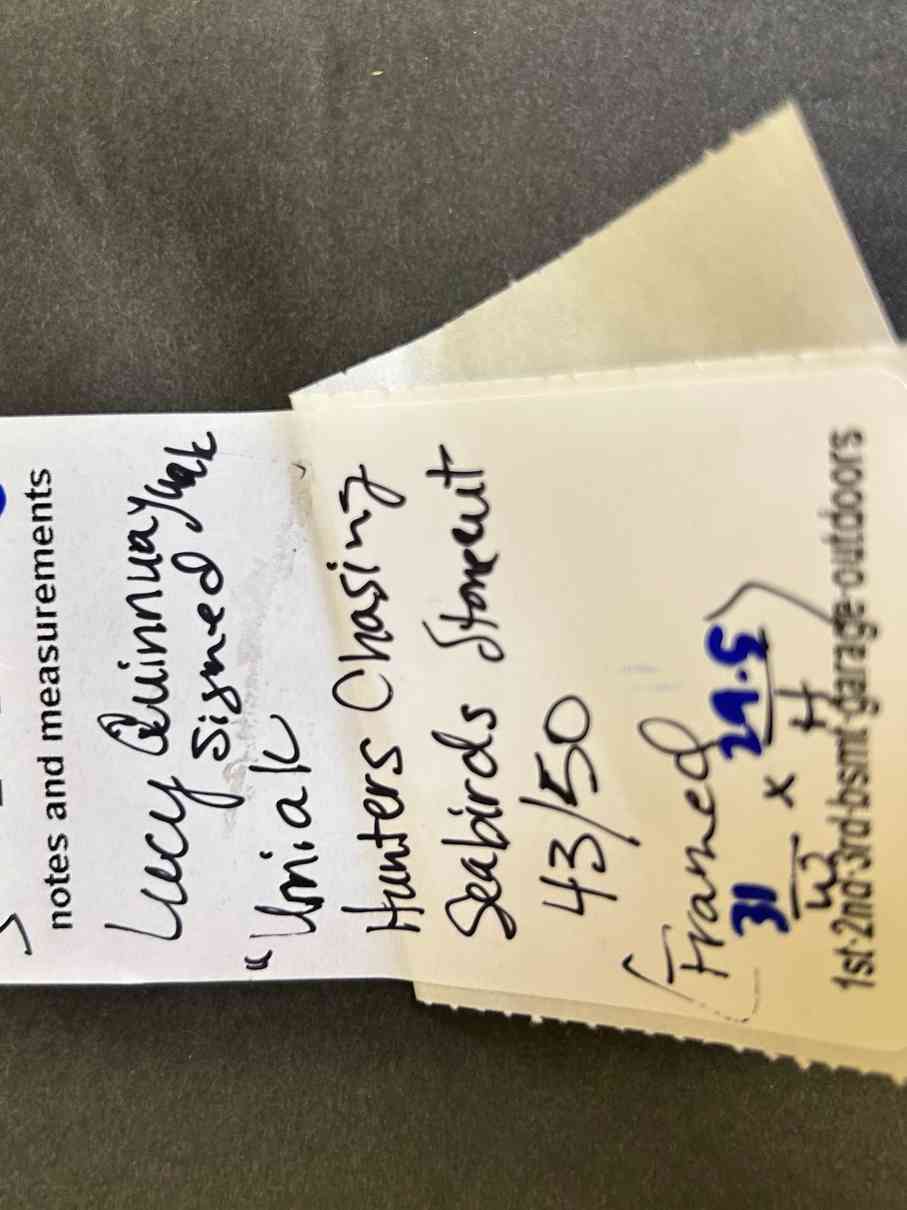 notes and measurements
Lucy Quinnuayuak
Signed
"Umiak
Hunters Chasing
Seabirds Stonecut
43/50
(Framed
31 x 29.5)
W H
1st·2nd·3rd·bsmt·garage·outdoors